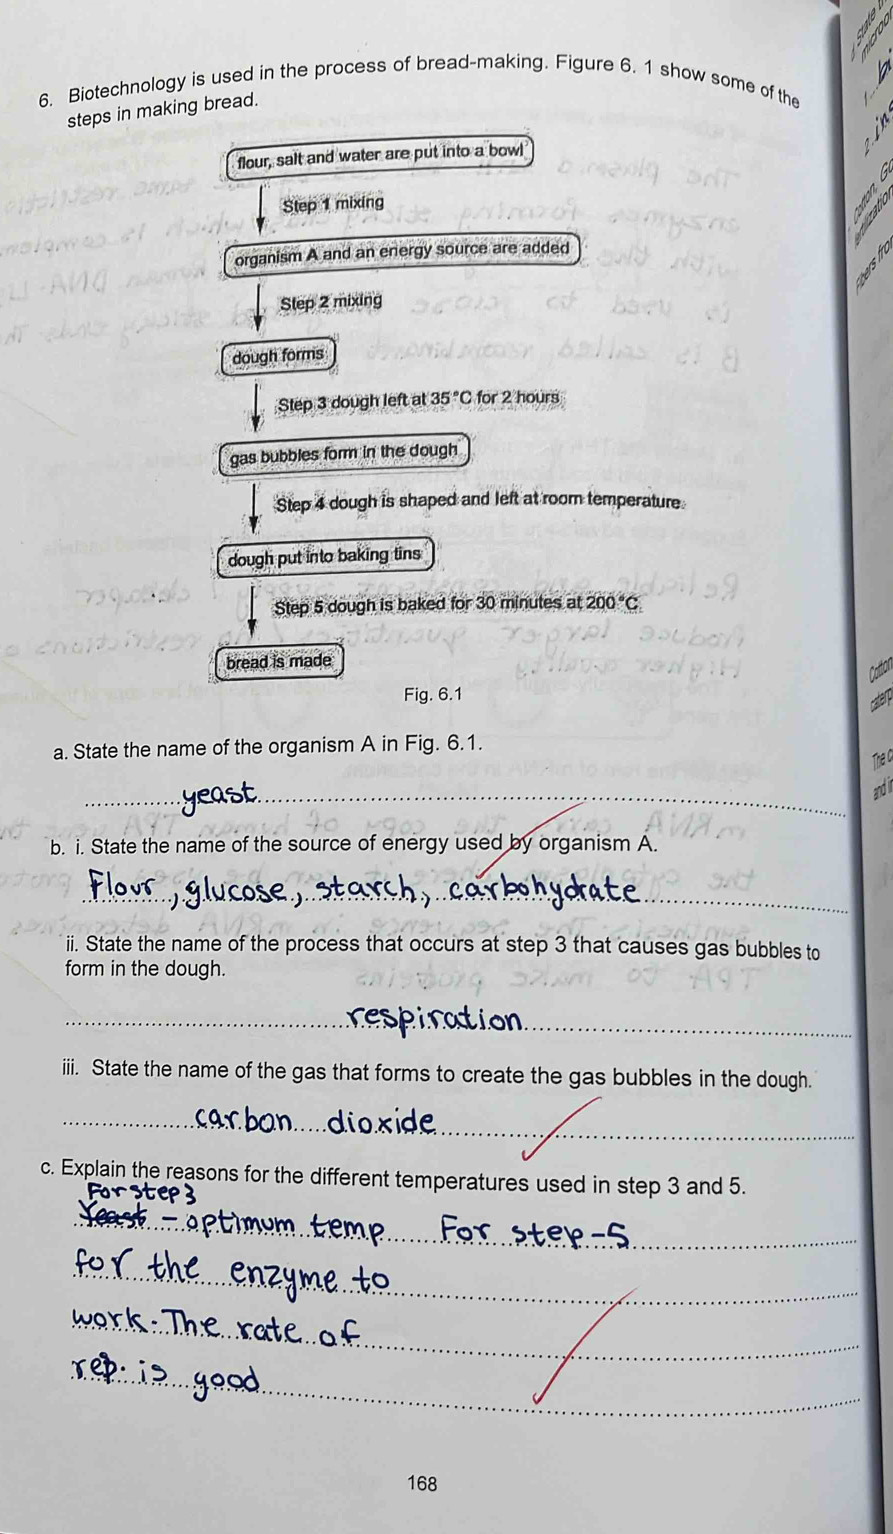 6. Biotechnology is used in the process of bread-making. Figure 6. 1 show some of the
steps in making bread.
flour, salt and water are put into a bowl
Step 1 mixing
organism A and an energy source are added
Step 2 mixing
dough forms
Step 3 dough left at 35 °C for 2 hours
gas bubbles form in the dough
Step 4 dough is shaped and left at room temperature
dough put into baking tins
Step 5 dough is baked for 30 minutes at 200 °C
bread is made
Fig. 6.1
a. State the name of the organism A in Fig. 6.1.
yeast
b. i. State the name of the source of energy used by organism A.
Flour, glucose, starch, carbohydrate
ii. State the name of the process that occurs at step 3 that causes gas bubbles to
form in the dough.
respiration
iii. State the name of the gas that forms to create the gas bubbles in the dough.
carbon dioxide
c. Explain the reasons for the different temperatures used in step 3 and 5.
For step 3
Yeast - optimum temp For step-5
for the enzyme to
work. The rate of
rep. is good
168